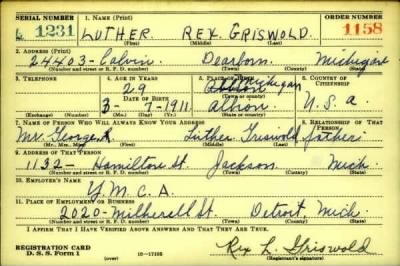 SERIAL NUMBER 1. NAME (Print) ORDER NUMBER
1231 LUTHER REX GRISWOLD. 1158
(First) (Middle) (Last)
2. ADDRESS (Print)
24403-Calvin Dearborn Michigan
(Number and street or R. F. D. number) (Town) (County) (State)
3. TELEPHONE 4. AGE IN YEARS 5. PLACE OF BIRTH 6. COUNTRY OF CITIZENSHIP
29 Michigan
DATE OF BIRTH Albion U.S.a.
3-7-1911
(Exchange) (Number) (Mo.) (Day) (Yr.) (State or country)
7. NAME OF PERSON WHO WILL ALWAYS KNOW YOUR ADDRESS 8. RELATIONSHIP OF THAT PERSON
Mr. George Luther Griswold father
(Mr., Mrs., Miss) (First) (Middle) (Last)
9. ADDRESS OF THAT PERSON
1132- Hamilton St. Jackson Mich.
(Number and street or R. F. D. number) (Town) (County) (State)
10. EMPLOYER'S NAME
Y.M.C.A.
11. PLACE OF EMPLOYMENT OR BUSINESS
2020- St. Detroit, Mich.
(Number and street or R. F. D. number) (Town) (County) (State)
I AFFIRM THAT I HAVE VERIFIED ABOVE ANSWERS AND THAT THEY ARE TRUE.
REGISTRATION CARD
D. S. S. Form 1 (over) 16-17105 Rex L. Griswold
(Registrant's signature)